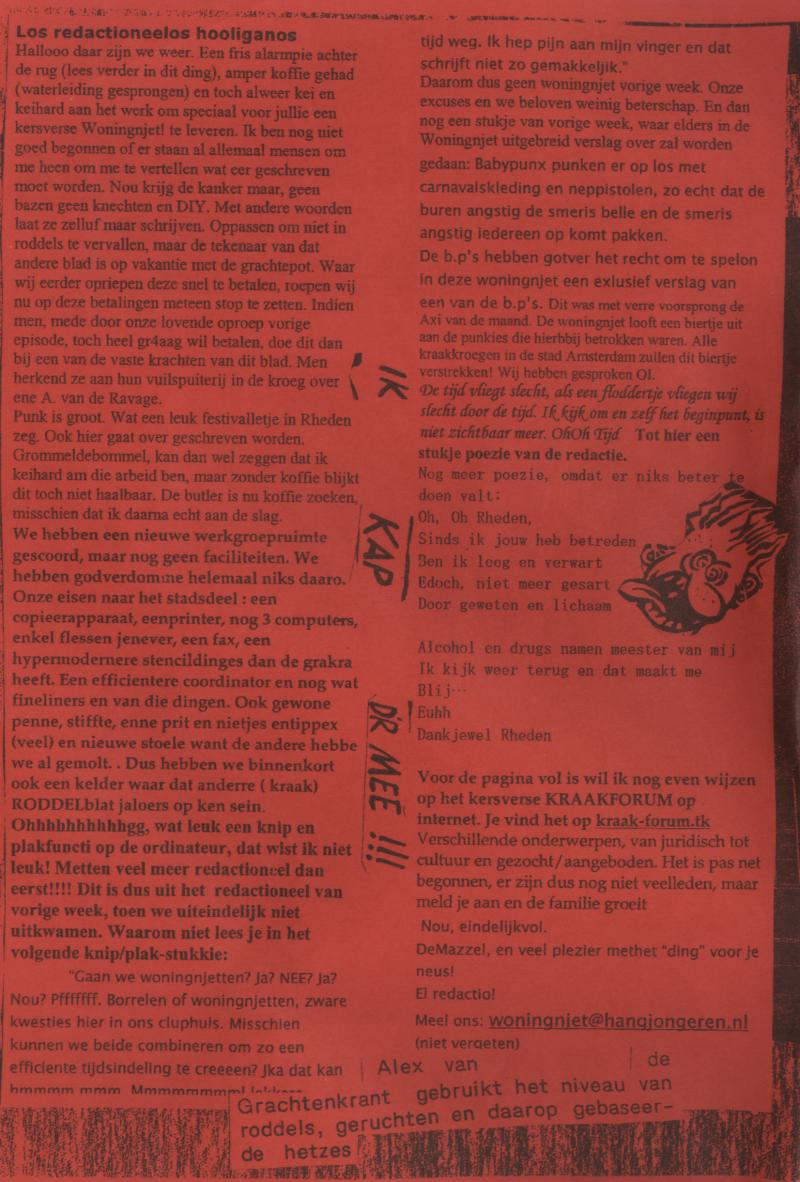 Los redactioneelos hooliganos
Hallooo daar zijn we weer. Een fris alarmpie achter
de rug (lees verder in dit ding), amper koffie gehad
(waterleiding gesprongen) en toch alweer kei en
keihard aan het werk om speciaal voor jullie een
kersverse Woningnjet! te leveren. Ik ben nog niet
goed begonnen of er staan al allemaal mensen om
me heen om me te vertellen wat eer geschreven
moet worden. Nou krijg de kanker maar, geen
bazen geen knechten en DIY. Met andere woorden
laat ze zelluf maar schrijven. Oppassen om niet in
roddels te vervallen, maar de tekenaar van dat
andere blad is op vakantie met de grachtepot. Waar
wij eerder opriepen deze snel te betalen, roepen wij
nu op deze betalingen meteen stop te zetten. Indien
men, mede door onze lovende oproep vorige
episode, toch heel gr4aag wil betalen, doe dit dan
bij een van de vaste krachten van dit blad. Men
herkend ze aan hun vuilspuiterij in de kroeg over
ene A. van de Ravage.
Punk is groot. Wat een leuk festivalletje in Rheden
zeg. Ook hier gaat over geschreven worden.
Grommeldebommel, kan dan wel zeggen dat ik
keihard am die arbeid ben, maar zonder koffie blijkt
dit toch niet haalbaar. De butler is nu koffie zoeken,
misschien dat ik daarna echt aan de slag.
We hebben een nieuwe werkgroepruimte
gescoord, maar nog geen faciliteiten. We
hebben godverdomme helemaal niks daaro.
Onze eisen naar het stadsdeel : een
copieerapparaat, eenprinter, nog 3 computers,
enkel flessen jenever, een fax, een
hypermodernere stencildinges dan de grakra
heeft. Een efficientere coordinator en nog wat
fineliners en van die dingen. Ook gewone
penne, stiffte, enne prit en nietjes entippex
(veel) en nieuwe stoele want de andere hebbe
we al gemolt. . Dus hebben we binnenkort
ook een kelder waar dat anderre ( kraak)
RODDELblat jaloers op ken sein.
Ohhhhhhhhhhgg, wat leuk een knip en
plakfuncti op de ordinateur, dat wist ik niet
leuk! Metten veel meer redactioneel dan
eerst!!!! Dit is dus uit het redactioneel van
vorige week, toen we uiteindelijk niet
uitkwamen. Waarom niet lees je in het
volgende knip/plak-stukkie:
"Gaan we woningnjetten? Ja? NEE? Ja?
Nou? Pfffffff. Borrelen of woningnjetten, zware
kwesties hier in ons cluphuis. Misschien
kunnen we beide combineren om zo een
efficiente tijdsindeling te creeeen? Jka dat kan
hmmmm mmm. Mmmmmmmm! lekkere
IK
KAP
D'R MEE !!!
tijd weg. Ik hep pijn aan mijn vinger en dat
schrijft niet zo gemakkeljik."
Daarom dus geen woningnjet vorige week. Onze
excuses en we beloven weinig beterschap. En dan
nog een stukje van vorige week, waar elders in de
Woningnjet uitgebreid verslag over zal worden
gedaan: Babypunx punken er op los met
carnavalskleding en neppistolen, zo echt dat de
buren angstig de smeris belle en de smeris
angstig iedereen op komt pakken.
De b.p's hebben gotver het recht om te spelon
in deze woningnjet een exlusief verslag van
een van de b.p's. Dit was met verre voorsprong de
Axi van de maand. De woningnjet looft een biertje uit
aan de punkies die hierhbij betrokken waren. Alle
kraakkroegen in de stad Amsterdam zullen dit biertje
verstrekken! Wij hebben gesproken OI.
De tijd vliegt slecht, als een floddertje vliegen wij
slecht door de tijd. Ik kijk om en zelf het beginpunt, is
niet zichtbaar meer. OhOh Tijd Tot hier een
stukje poezie van de redactie.
Nog meer poezie, omdat er niks beter te
doen valt:
Oh, Oh Rheden,
Sinds ik jouw heb betreden
Ben ik leeg en verwart
Edoch, niet meer gesart
Door geweten en lichaam
Alcohol en drugs namen meester van mij
Ik kijk weer terug en dat maakt me
Blij…
Euhh
Dankjewel Rheden
Voor de pagina vol is wil ik nog even wijzen
op het kersverse KRAAKFORUM op
internet. Je vind het op kraak-forum.tk
Verschillende onderwerpen, van juridisch tot
cultuur en gezocht/aangeboden. Het is pas net
begonnen, er zijn dus nog niet veelleden, maar
meld je aan en de familie groeit
Nou, eindelijkvol.
DeMazzel, en veel plezier methet "ding" voor je
neus!
El redactio!
Meel ons: woningnjet@hangjongeren.nl
(niet vergeten)
Alex van de
Grachtenkrant gebruikt het niveau van
roddels, geruchten en daarop gebaseer-
de hetzes